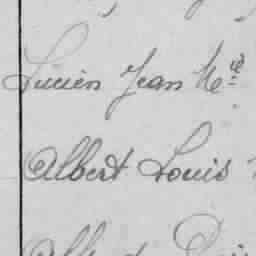 Lucien Jean M^ie
Albert Louis